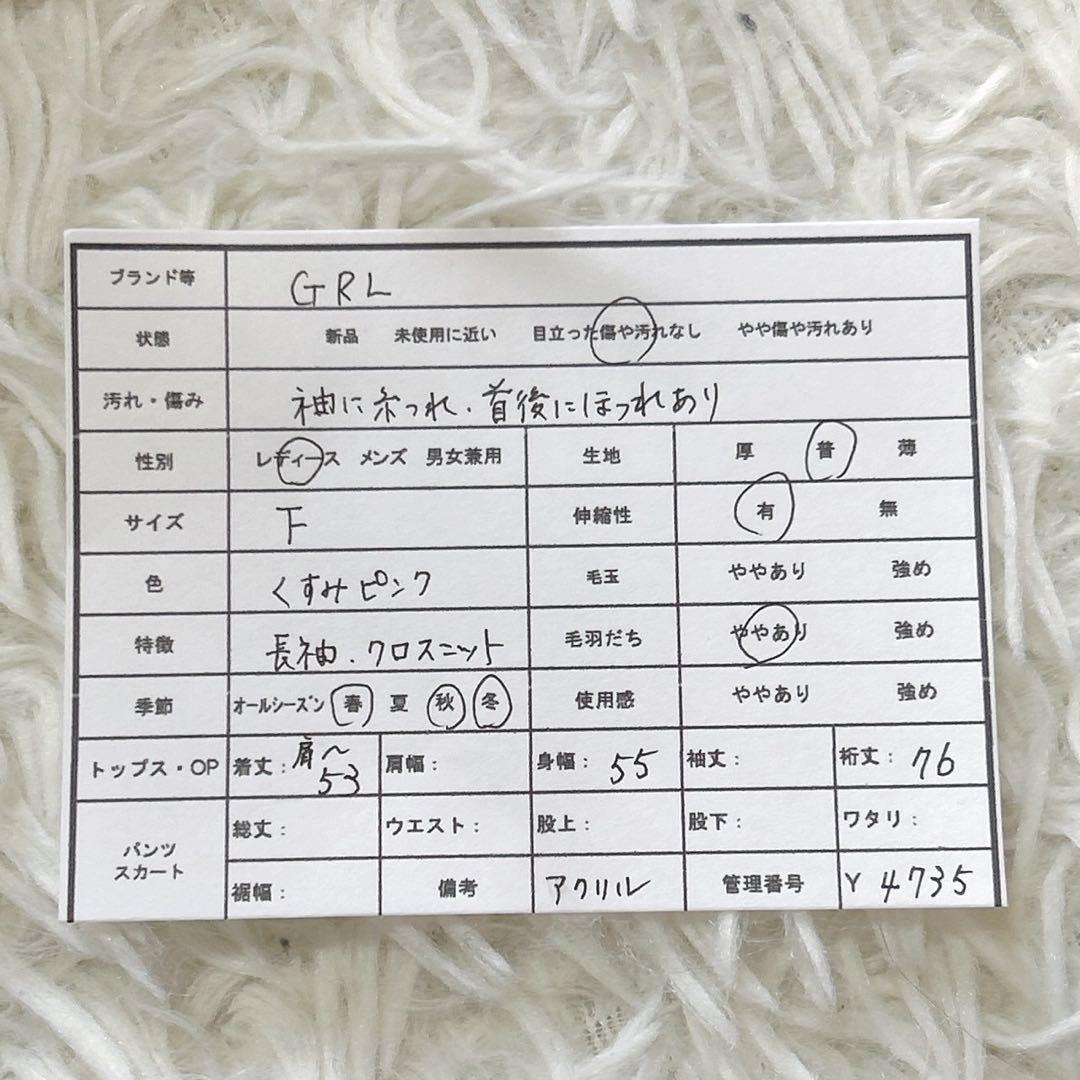 ブランド等 GRL
状態 新品 未使用に近い 目立った傷や汚れなし やや傷や汚れあり
汚れ・傷み 袖に糸つれ、首後にほつれあり
性別 レディース メンズ 男女兼用 生地 厚 普 薄
サイズ F 伸縮性 有 無
色 くすみピンク 毛玉 ややあり 強め
特徴 長袖、クロスニット 毛羽だち ややあり 強め
季節 オールシーズン 春 夏 秋 冬 使用感 ややあり 強め
トップス・OP 着丈: 肩〜53 肩幅: 身幅: 55 袖丈: 裄丈: 76
パンツ スカート 総丈: ウエスト: 股上: 股下: ワタリ:
裾幅: 備考 アクリル 管理番号 Y 4735